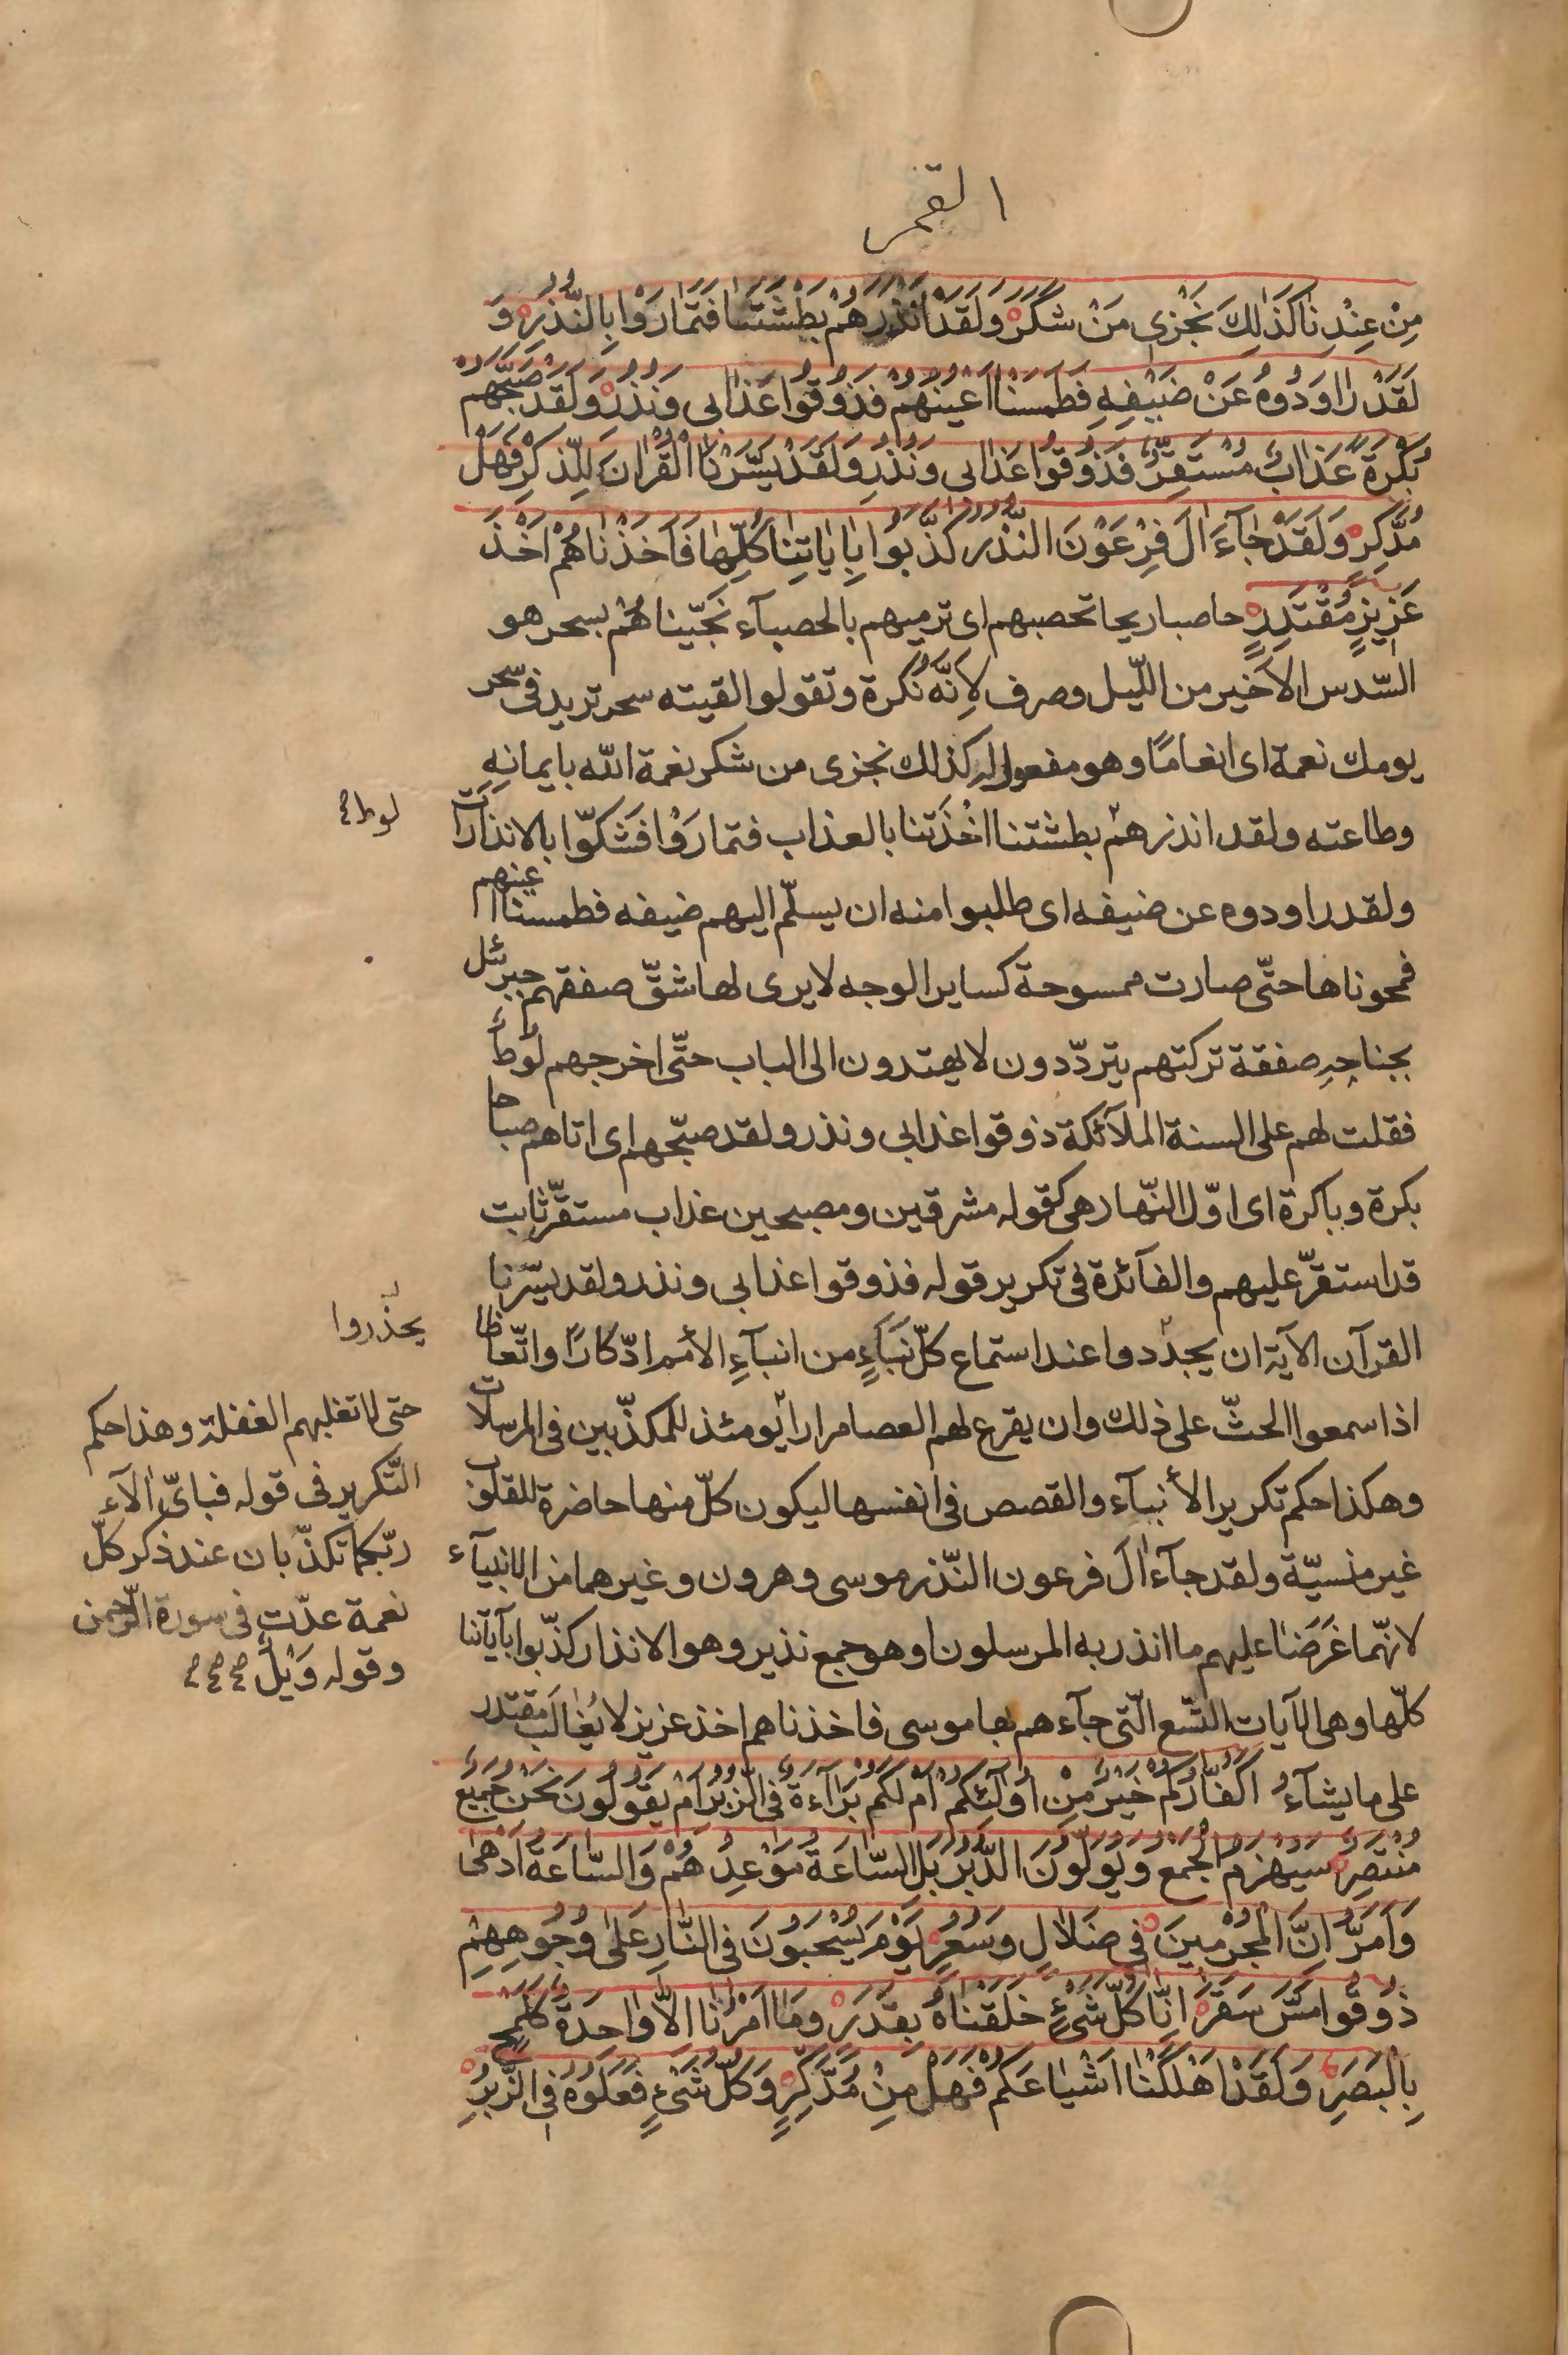 القمر
مِنْ عِنْدِنَا كَذٰلِكَ نَجْزِى مَنْ شَكَرَ وَلَقَدْ اَنْذَرَهُمْ بَطْشَتَنَا فَتَمَارَوْا بِالنُّذُرِ وَ
لَقَدْ رَاوَدُوهُ عَنْ ضَيْفِهِ فَطَمَسْنَا اَعْيُنَهُمْ فَذُوقُوا عَذَابِى وَنُذُرِ وَلَقَدْ صَبَّحَهُمْ
بُكْرَةً عَذَابٌ مُسْتَقِرٌّ فَذُوقُوا عَذَابِى وَنُذُرِ وَلَقَدْ يَسَّرْنَا الْقُرْانَ لِلذِّكْرِ فَهَلْ
مُدَّكِرٍ وَلَقَدْ جَآءَ اٰلَ فِرْعَوْنَ النُّذُرُ كَذَّبُوا بِاٰيَاتِنَا كُلِّهَا فَاَخَذْنَاهُمْ اَخْذَ
عَزِيزٍ مُقْتَدِرٍ حاصبا ريحا تحصبهم اى ترميهم بالحصبآء نَجَّيْنَاهُمْ بسحر هو
السّدس الاَخير من اللّيل وصرف لِاَنَّهُ نُكرة وتقولوا لقيته سحر تريد فى سَحر
يومك نعمة اى انعامًا وهو مفعول له كذلك نجزى من شكر نعمة الله بايمانِهِ
وطاعته ولقد انذرهم بطشتنا اَخْذَتنا بالعذاب فتمارَوْا فَشَكوّا بالانذارات
ولقد راودوه عن ضيفه اى طلبوا منه ان يسلّم اليهم ضيفه فطمسنا اعينهم
فمحوناها حتّى صارت ممسوحة كساير الوجه لا يرى لها شقّ صفقهم جبرئيل
بجناحِهِ صفقة تركتهم يتردّدون لا يهتدون الى الباب حتّى اخرجهم لوط
فقلت لهم على السنة الملآئكة ذوقوا عذابى ونذر ولقد صبّحهم اى اتاهم صباحا
بكرة وباكرة اى اوّل النّهار هى كقوله مشرقين ومصبحين عذاب مستقرّ ثابت
قد استقرّ عليهم والفآئدة فى تكرير قوله فذوقوا عذابى ونذر ولقد يسّرنا
القرآن الآية ان يجدّدوا عند استماع كلّ نَبَاءٍ من انبآءِ الأمم ادّكارًا واتّعاظا
اذا سمعوا الحثّ على ذلك وان يقرع لهم العصا مرارا يومئذ للمكذّبين فى المرسلات
وهكذا حكم تكرير الأنبآء والقصص فى انفسها ليكون كلّ منها حاضرة للقلوب
غير منسيّة ولقد جآء اٰلَ فرعون النّذر موسى وهرون وغيرهما من الانبيآء
لانّهما عَرَضَا عليهم ما انذر به المرسلون او هو جمع نذير وهو الانذار كذّبوا بآياتنا
كلّها وهى الآيات التّسع الّتى جآءهم بها موسى فاخذناهم اخذ عزيز لا يُغالَب مقتدر
على ما يشآء اَكُفَّارُكُمْ خَيْرٌ مِنْ اُولٰٓئِكُمْ اَمْ لَكُمْ بَرَآءَةٌ فِى الزُّبُرِ اَمْ يَقُولُونَ نَحْنُ جَمِيعٌ
مُنْتَصِرٌ سَيُهْزَمُ الْجَمْعُ وَيُوَلُّونَ الدُّبُرَ بَلِ السَّاعَةُ مَوْعِدُهُمْ وَالسَّاعَةُ اَدْهٰى
وَاَمَرُّ اِنَّ الْمُجْرِمِينَ فِى ضَلَالٍ وَسُعُرٍ يَوْمَ يُسْحَبُونَ فِى النَّارِ عَلٰى وُجُوهِهِمْ
ذُوقُوا مَسَّ سَقَرَ اِنَّا كُلَّ شَىْءٍ خَلَقْنَاهُ بِقَدَرٍ وَمَا اَمْرُنَا اِلَّا وَاحِدَةٌ كَلَمْحٍ
بِالْبَصَرِ وَلَقَدْ اَهْلَكْنَا اَشْيَاعَكُمْ فَهَلْ مِنْ مُدَّكِرٍ وَكُلُّ شَىْءٍ فَعَلُوهُ فِى الزُّبُرِ
لوط
يحذروا
حتى لا تغلبهم الغفلة وهذا حكم
التّكرير فى قوله فباىّ اٰلآء
ربّكما تكذّبان عند ذكر كلّ
نعمة عدّت فى سورة الرّحمن
وقوله وَيْلٌ